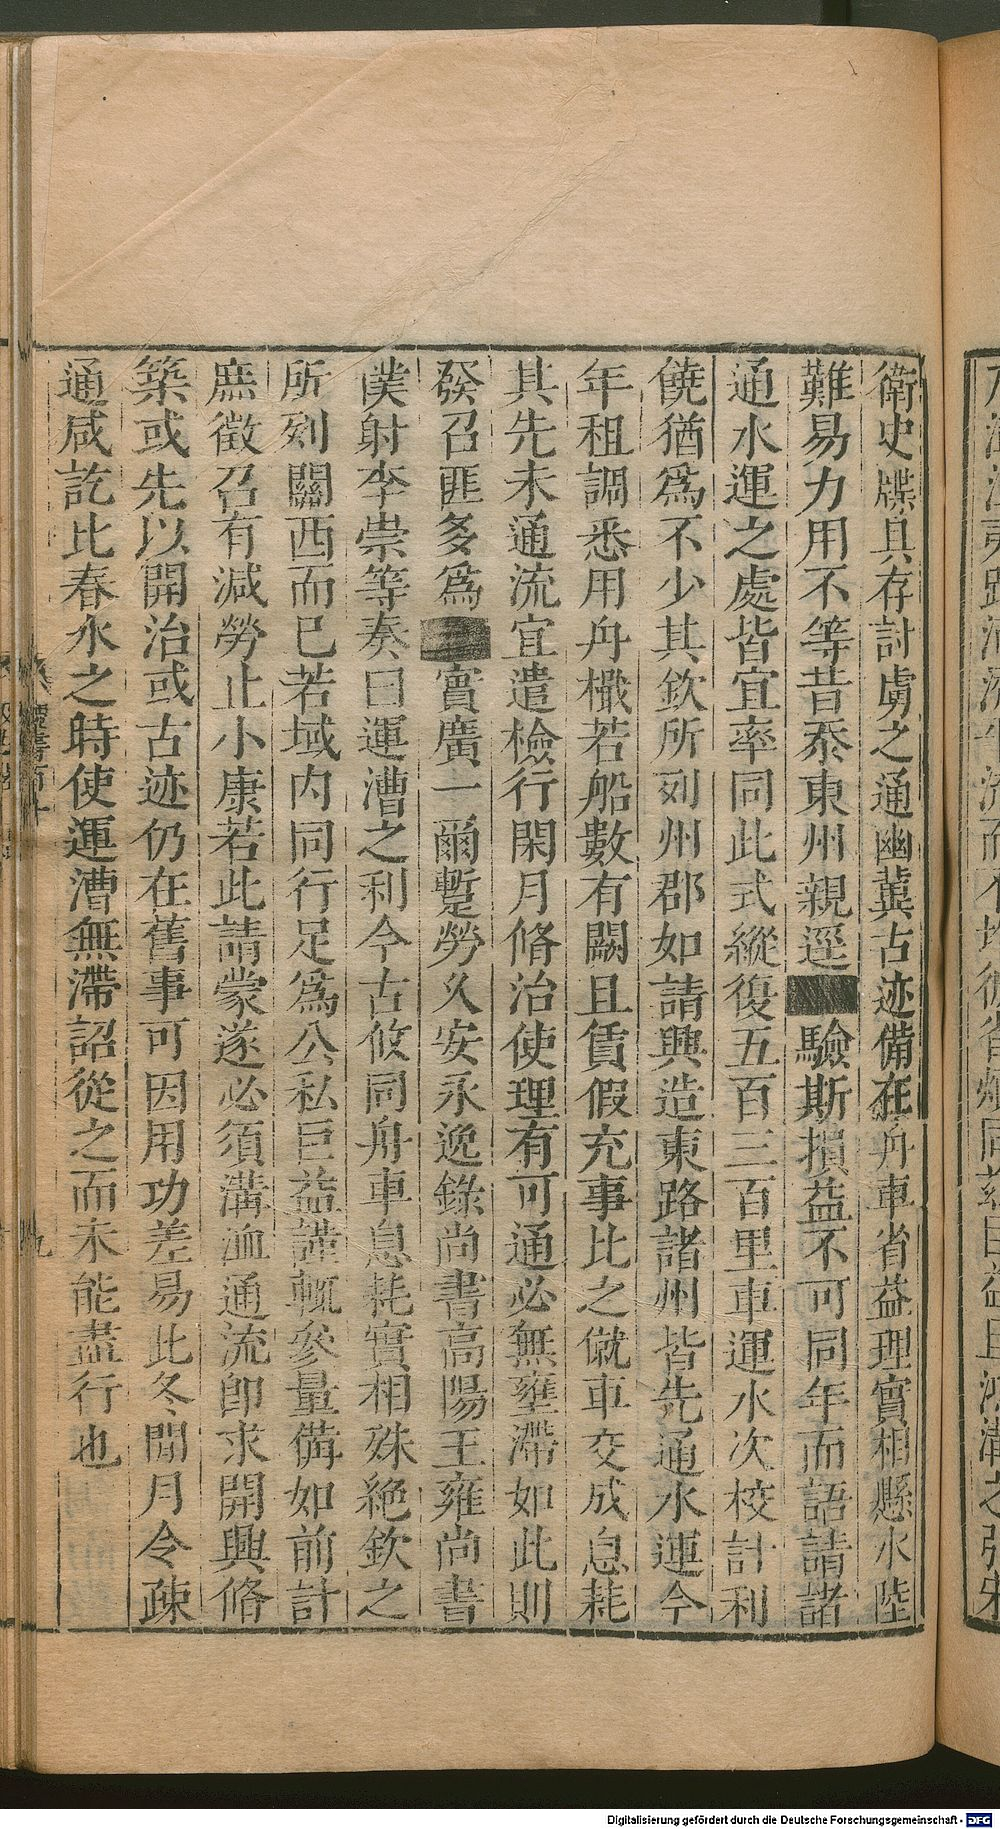 衛史牒具存討虜之通幽冀古迹備在舟車省益理實相懸水陸
難易力用不等昔忝東州親逕驗斯損益不可同年而語請諸
通水運之處皆宜率同此式縱復五百三百里車運水次校計利
饒猶爲不少其欽所列州郡如請興造東路諸州皆先通水運今
年租調悉用舟檝若船數有闕且賃假充事比之僦車交成息耗
其先未通流宜遣檢行閑月脩治使理有可通必無壅滯如此則
發召匪多爲實廣一爾蹔勞久安永逸錄尚書高陽王雍尚書
僕射李崇等奏曰運漕之利今古攸同舟車息耗實相殊絶欽之
所列關西而已若域内同行足爲公私巨益謹輒參量備如前計
庶徵召有減勞止小康若此請蒙遂必須溝洫通流即求開興脩
築或先以開治或古迹仍在舊事可因用功差易此冬閒月令疎
通咸訖比春水之時使運漕無滯詔從之而未能盡行也
九
Digitalisierung gefördert durch die Deutsche Forschungsgemeinschaft - DFG